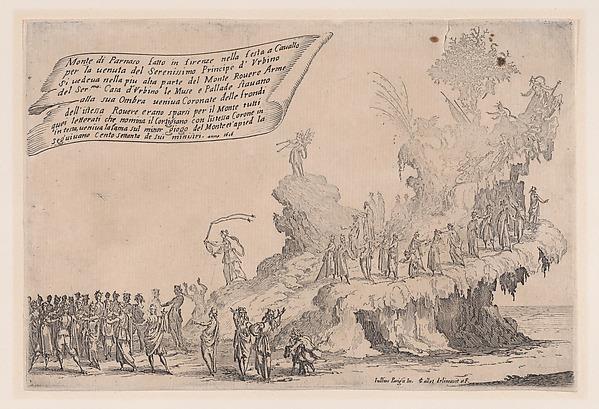 Monte di Parnaso fatto in firenze nella festa a Cauallo
per la uenuta del Serenissimo Principe d' Vrbino
Si uedeua nella piu alta parte del Monte Rouere Arme
del Ser.mo Casa d' Vrbino le Muse e Pallade Stauano
alla sua Ombra ueniua Coronate delle frondi
dell' istessa Rouere erano sparsi per il Monte tutti
quei letterati che nomina il Cortigiano con l'istessa Corone in
testa, ueniua la fama sul minor giogo del Monte et a pied la
seguiuano Cento Settanta de sui ministri. anno 1616
Iullius Parigii In. Callot delineauit et F.